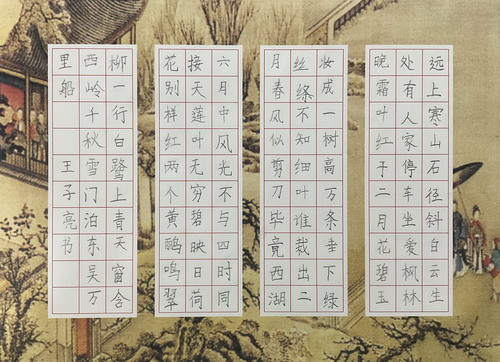 远上寒山石径斜白云生
处有人家停车坐爱枫林
晚霜叶红于二月花碧玉
妆成一树高万条垂下绿
丝绦不知细叶谁裁出二
月春风似剪刀毕竟西湖
六月中风光不与四时同
接天莲叶无穷碧映日荷
花别样红两个黄鹂鸣翠
柳一行白鹭上青天窗含
西岭千秋雪门泊东吴万
里船 王子亮书